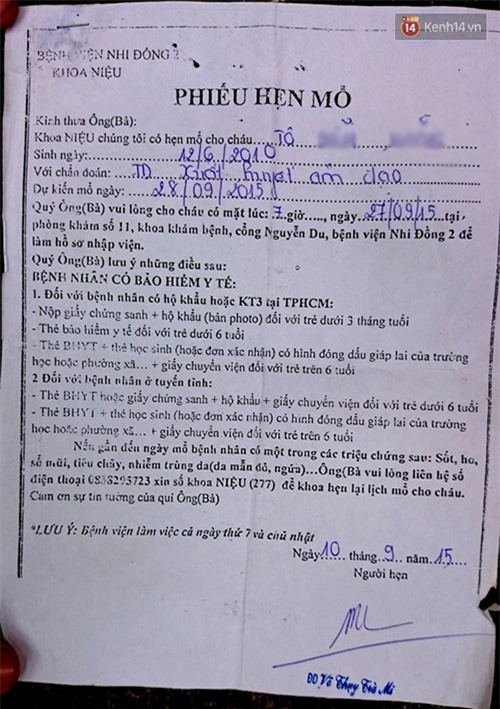 14 Kenh14.vn
BỆNH VIỆN NHI ĐỒNG 2
KHOA NIỆU
PHIẾU HẸN MỔ
Kính thưa Ông(Bà):
Khoa NIỆU chúng tôi có hẹn mổ cho cháu TÔ
Sinh ngày: 12/6/2010
Với chẩn đoán: TD xuất huyết âm đạo
Dự kiến mổ ngày: 28/09/2015
Quý Ông(Bà) vui lòng cho cháu có mặt lúc: 7 giờ....., ngày 27/09/15 tại
phòng khám số 11, khoa khám bệnh, cổng Nguyễn Du, bệnh viện Nhi Đồng 2 để
làm hồ sơ nhập viện.
Quý Ông(Bà) lưu ý những điều sau:
BỆNH NHÂN CÓ BẢO HIỂM Y TẾ:
1. Đối với bệnh nhân có hộ khẩu hoặc KT3 tại TPHCM:
- Nộp giấy chứng sanh + hộ khẩu (bản photo) đối với trẻ dưới 3 tháng tuổi
- Thẻ bảo hiểm y tế đối với trẻ dưới 6 tuổi
- Thẻ BHYT + thẻ học sinh (hoặc đơn xác nhận) có hình đóng dấu giáp lai của trường
học hoặc phường xã... + giấy chuyển viện đối với trẻ trên 6 tuổi
2 Đối với bệnh nhân ở tuyến tỉnh:
- Thẻ BHYT hoặc giấy chứng sanh + hộ khẩu + giấy chuyển viện đối với trẻ dưới 6 tuổi
- Thẻ BHYT + thẻ học sinh (hoặc đơn xác nhận) có hình đóng dấu giáp lai của trường
học hoặc phường xã... + giấy chuyển viện đối với trẻ trên 6 tuổi
Nếu gần đến ngày mổ bệnh nhân có một trong các triệu chứng sau: Sốt, ho,
sổ mũi, tiêu chảy, nhiễm trùng da(da mẩn đỏ, ngứa)...Ông(Bà) vui lòng liên hệ số
điện thoại 0838295723 xin số khoa NIỆU (277) để khoa hẹn lại lịch mổ cho cháu.
Cám ơn sự tin tưởng của quí Ông(Bà)
*LƯU Ý: Bệnh viện làm việc cả ngày thứ 7 và chủ nhật
Ngày 10 tháng 9 năm 15
Người hẹn
ĐD Võ Thụy Trà Mi